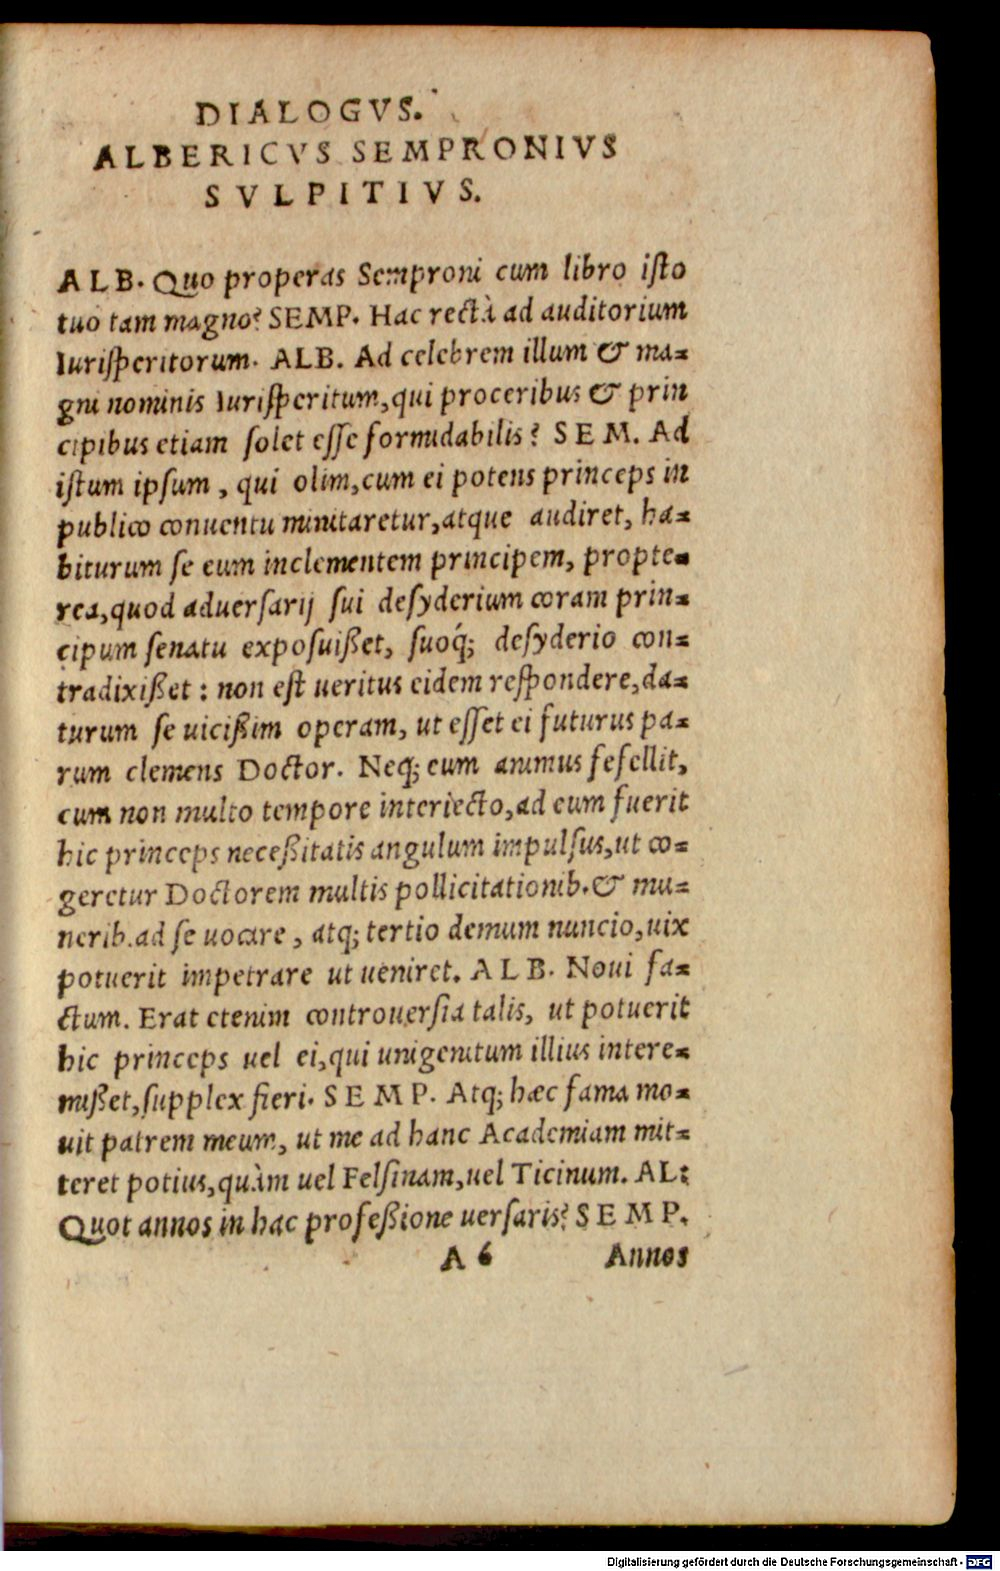 DIALOGVS.
ALBERICVS SEMPRONIVS
SVLPITIVS.
ALB. Quo properas Semproni cum libro iſto
tuo tam magno? SEMP. Hac rectà ad auditorium
Iuriſperitorum. ALB. Ad celebrem illum & ma=
gni nominis Iuriſperitum, qui proceribus & prin
cipibus etiam ſolet eſſe formidabilis? SEM. Ad
iſtum ipſum, qui olim, cum ei potens princeps in
publico conuentu minitaretur, atque audiret, ha=
biturum ſe eum inclementem principem, propte=
rea, quod aduerſarij ſui deſyderium coram prin=
cipum ſenatu expoſuißet, ſuoq́; deſyderio con=
tradixißet: non eſt ueritus eidem reſpondere, da=
turum ſe uicißim operam, ut eſſet ei futurus pa=
rum clemens Doctor. Neq; eum animus fefellit,
cum non multo tempore interiecto, ad eum fuerit
hic princeps neceßitatis angulum impulſus, ut co=
geretur Doctorem multis pollicitationib. & mu=
nerib. ad ſe uocare, atq; tertio demum nuncio, uix
potuerit impetrare ut ueniret. ALB. Noui fa=
ctum. Erat etenim controuerſia talis, ut potuerit
hic princeps uel ei, qui unigenitum illius intere=
mißet, ſupplex fieri. SEMP. Atq; hæc fama mo=
uit patrem meum, ut me ad hanc Academiam mit=
teret potius, quàm uel Felſinam, uel Ticinum. AL:
Quot annos in hac profeßione uerſaris? SEMP.
A 6 Annos
Digitalisierung gefördert durch die Deutsche Forschungsgemeinschaft - DFG